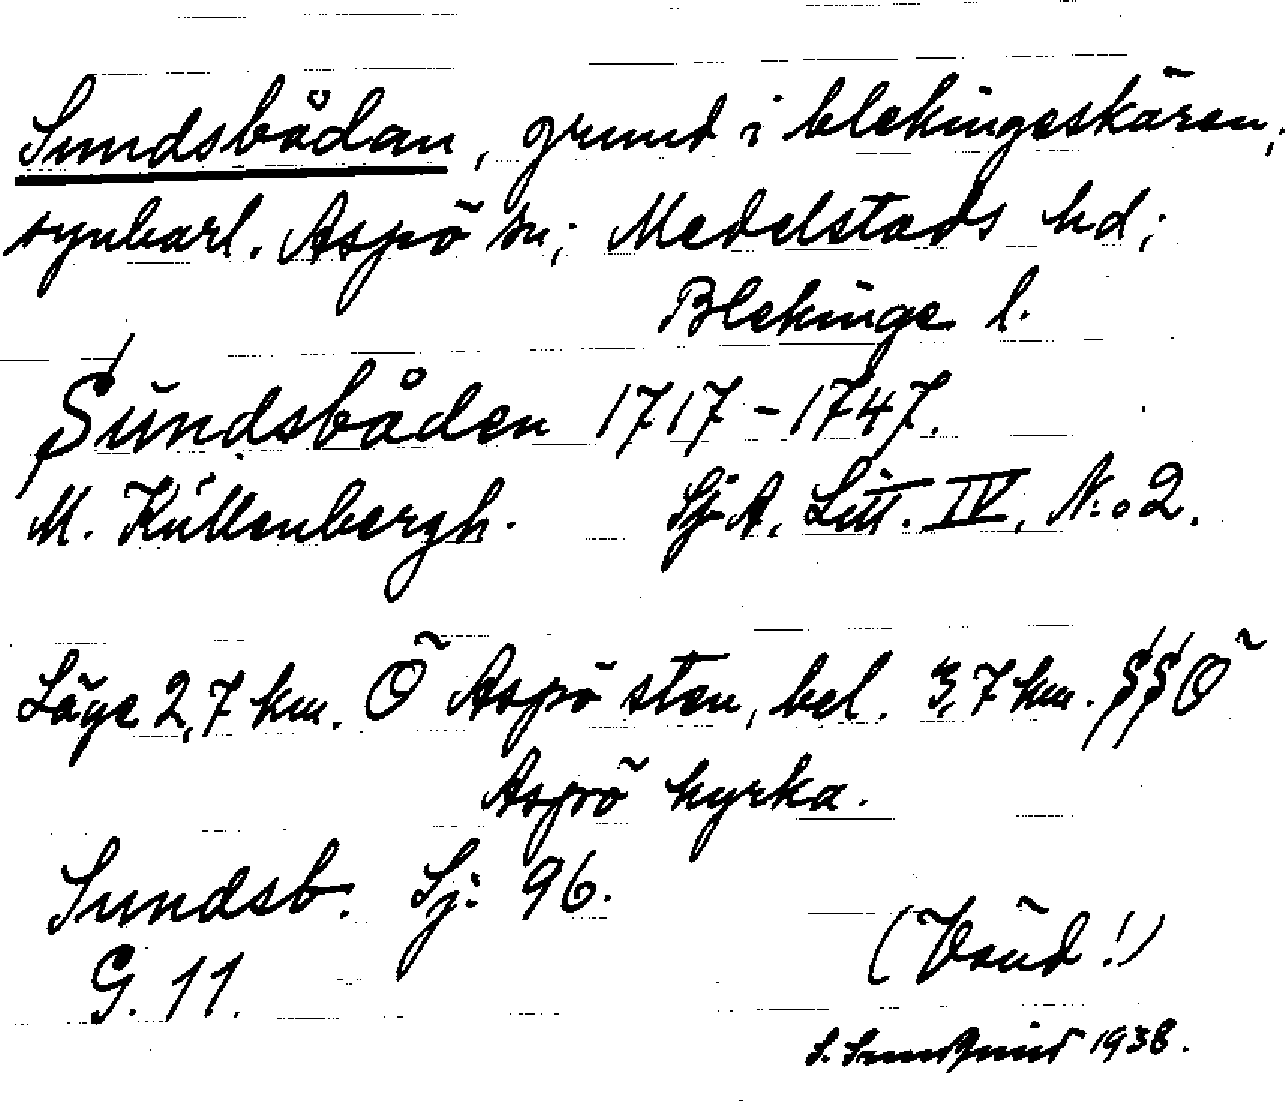 Sundsbådan, grund i blekingeskären,
synbarl. Aspö sn; Medelstads hd;
Blekinge l.
Sundsbåden 1717-1747.
M. Küllenbergh. Sj.A. Litt. IV, N:o 2.
Läge 2,7 km. Ö Aspö sten, bel. 3,7 km. SSÖ
Aspö kyrka.
Sundsb. Sj: 96.
G. 11.
(Vänd!)
S. 1938.